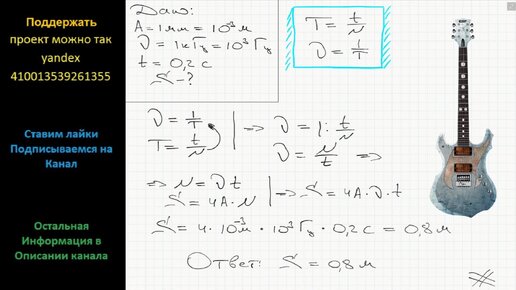 Поддержать
проект можно так
yandex
410013539261355
Ставим лайки
Подписываемся на
Канал
Остальная
Информация в
Описании канала
Дано:
A = 1 мм = 10⁻³ м
ν = 1 кГц = 10³ Гц
t = 0,2 с
S - ?
T = t/N
ν = 1/T
ν = 1/T
T = t/N
=> ν = 1 : t/N
ν = N/t =>
=> N = νt
S = 4A·N
=> S = 4A·ν·t
S = 4·10⁻³ м · 10³ Гц · 0,2 с = 0,8 м
Ответ: S = 0,8 м